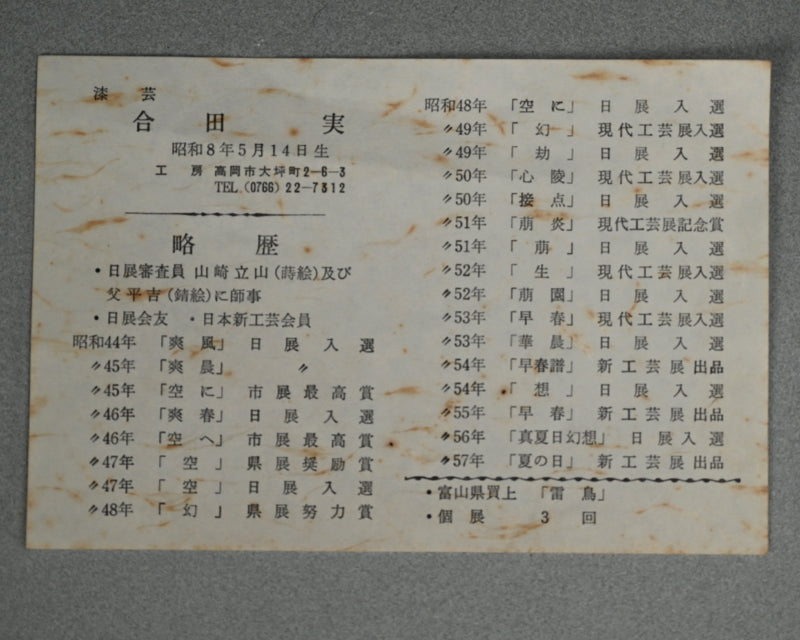 漆芸
合田 実
昭和8年5月14日生
工房 高岡市大坪町2-6-3
TEL(0766)22-7312
略歴
・日展審査員 山崎立山(蒔絵)及び
父平吉(錆絵)に師事
・日展会友 ・日本新工芸会員
昭和44年 「爽風」 日展入選
〃45年 「爽晨」 〃
〃45年 「空に」 市展最高賞
〃46年 「爽春」 日展入選
〃46年 「空へ」 市展最高賞
〃47年 「空」 県展奨励賞
〃47年 「空」 日展入選
〃48年 「幻」 県展努力賞
昭和48年 「空に」 日展入選
〃49年 「幻」 現代工芸展入選
〃49年 「劫」 日展入選
〃50年 「心陵」 現代工芸展入選
〃50年 「接点」 日展入選
〃51年 「萠炎」 現代工芸展記念賞
〃51年 「萠」 日展入選
〃52年 「生」 現代工芸展入選
〃52年 「萠園」 日展入選
〃53年 「早春」 現代工芸展入選
〃53年 「華晨」 日展入選
〃54年 「早春譜」 新工芸展出品
〃54年 「想」 日展入選
〃55年 「早春」 新工芸展出品
〃56年 「真夏日幻想」 日展入選
〃57年 「夏の日」 新工芸展出品
・富山県買上 「雷鳥」
・個展 3回